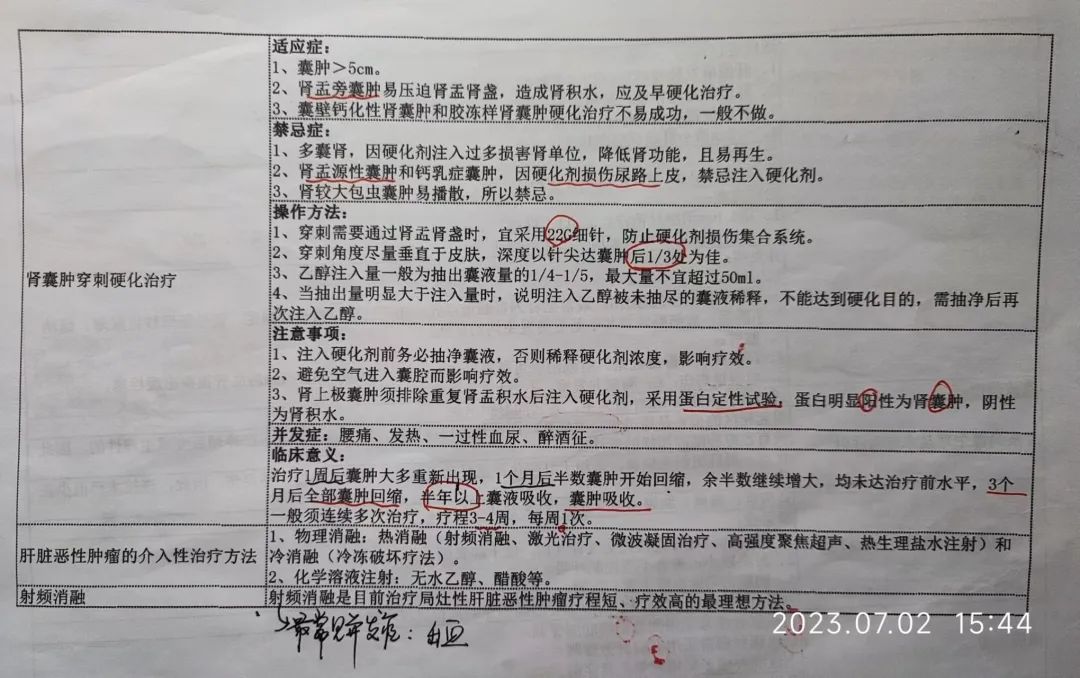 适应症：
1、囊肿＞5cm。
2、肾盂旁囊肿易压迫肾盂肾盏，造成肾积水，应及早硬化治疗。
3、囊壁钙化性肾囊肿和胶冻样肾囊肿硬化治疗不易成功，一般不做。
禁忌症：
1、多囊肾，因硬化剂注入过多损害肾单位，降低肾功能，且易再生。
2、肾盂源性囊肿和钙乳症囊肿，因硬化剂损伤尿路上皮，禁忌注入硬化剂。
3、肾较大包虫囊肿易播散，所以禁忌。
操作方法：
1、穿刺需要通过肾盂肾盏时，宜采用22G细针，防止硬化剂损伤集合系统。
2、穿刺角度尽量垂直于皮肤，深度以针尖达囊肿后1/3处为佳。
肾囊肿穿刺硬化治疗
3、乙醇注入量一般为抽出囊液量的1/4-1/5，最大量不宜超过50ml。
4、当抽出量明显大于注入量时，说明注入乙醇被未抽尽的囊液稀释，不能达到硬化目的，需抽净后再
次注入乙醇。
注意事项：
1、注入硬化剂前务必抽净囊液，否则稀释硬化剂浓度，影响疗效。
2、避免空气进入囊腔而影响疗效。
3、肾上极囊肿须排除重复肾盂积水后注入硬化剂，采用蛋白定性试验，蛋白明显阳性为肾囊肿，阴性
为肾积水。
并发症：腰痛、发热、一过性血尿、醉酒征。
临床意义：
治疗1周后囊肿大多重新出现，1个月后半数囊肿开始回缩，余半数继续增大，均未达治疗前水平，3个
月后全部囊肿回缩，半年以上囊液吸收，囊肿吸收。
一般须连续多次治疗，疗程3-4周，每周1次。
肝脏恶性肿瘤的介入性治疗方法
1、物理消融：热消融（射频消融、激光治疗、微波凝固治疗、高强度聚焦超声、热生理盐水注射）和
冷消融（冷冻破坏疗法）。
2、化学溶液注射：无水乙醇、醋酸等。
射频消融
射频消融是目前治疗局灶性肝脏恶性肿瘤疗程短、疗效高的最理想方法。
最常见并发症：
2023.07.02 15:44